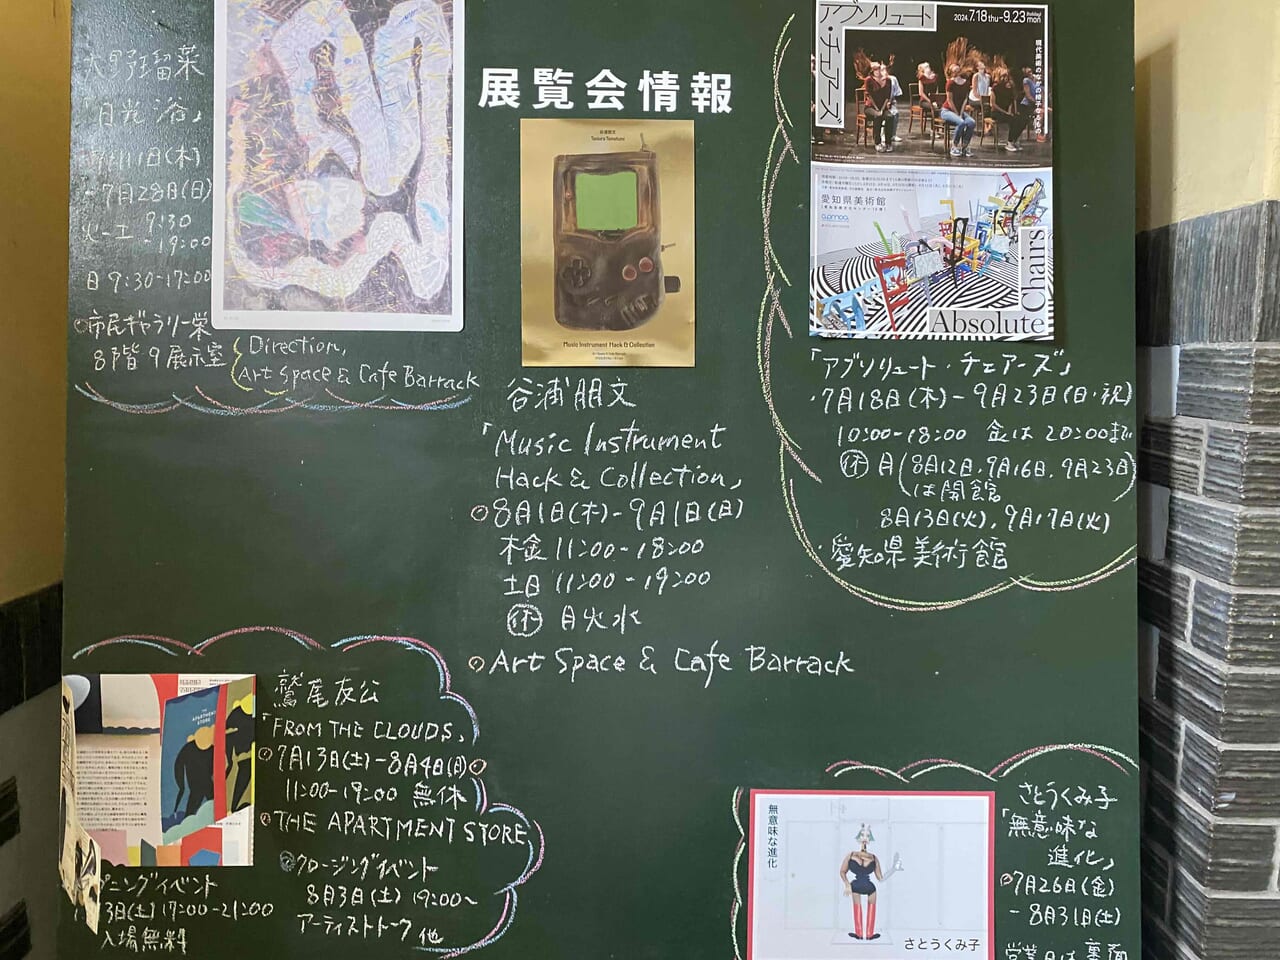 展覧会情報
大野瑠菜
「月光浴」
7月11日(木)
-7月28日(日)
火-土 9:30
-19:00
日 9:30-17:00
市民ギャラリー栄
8階 9展示室
Direction,
Art Space & Cafe Barrack
谷浦朋文
Music Instrument Hack & Collection
谷浦朋文
「Music Instrument
Hack & Collection」
8月1日(木)-9月1日(日)
木金 11:00-18:00
土日 11:00-19:00
休 月火水
Art Space & Cafe Barrack
アブソリュート
・チェアーズ
2024.7.18 thu-9.23 mon
現代美術のなかの椅子なるもの
愛知県美術館
Absolute
Chairs
「アブソリュート・チェアーズ」
・7月18日(木)-9月23日(日・祝)
10:00-18:00 金は20:00まで
休 月(8月12日,9月16日,9月23日)
は開館
8月13日(火),9月17日(火)
・愛知県美術館
THE
APARTMENT
STORE
鷲尾友公
「FROM THE CLOUDS」
7月13日(土)-8月4日(日)
11:00-19:00 無休
THE APARTMENT STORE
クロージングイベント
8月3日(土) 19:00~
アーティストトーク 他
プニングイベント
3日(土)17:00-21:00
入場無料
無意味な進化
さとうくみ子
さとうくみ子
「無意味な
進化」
7月26日(金)
-8月31日(土)
営業日は裏面